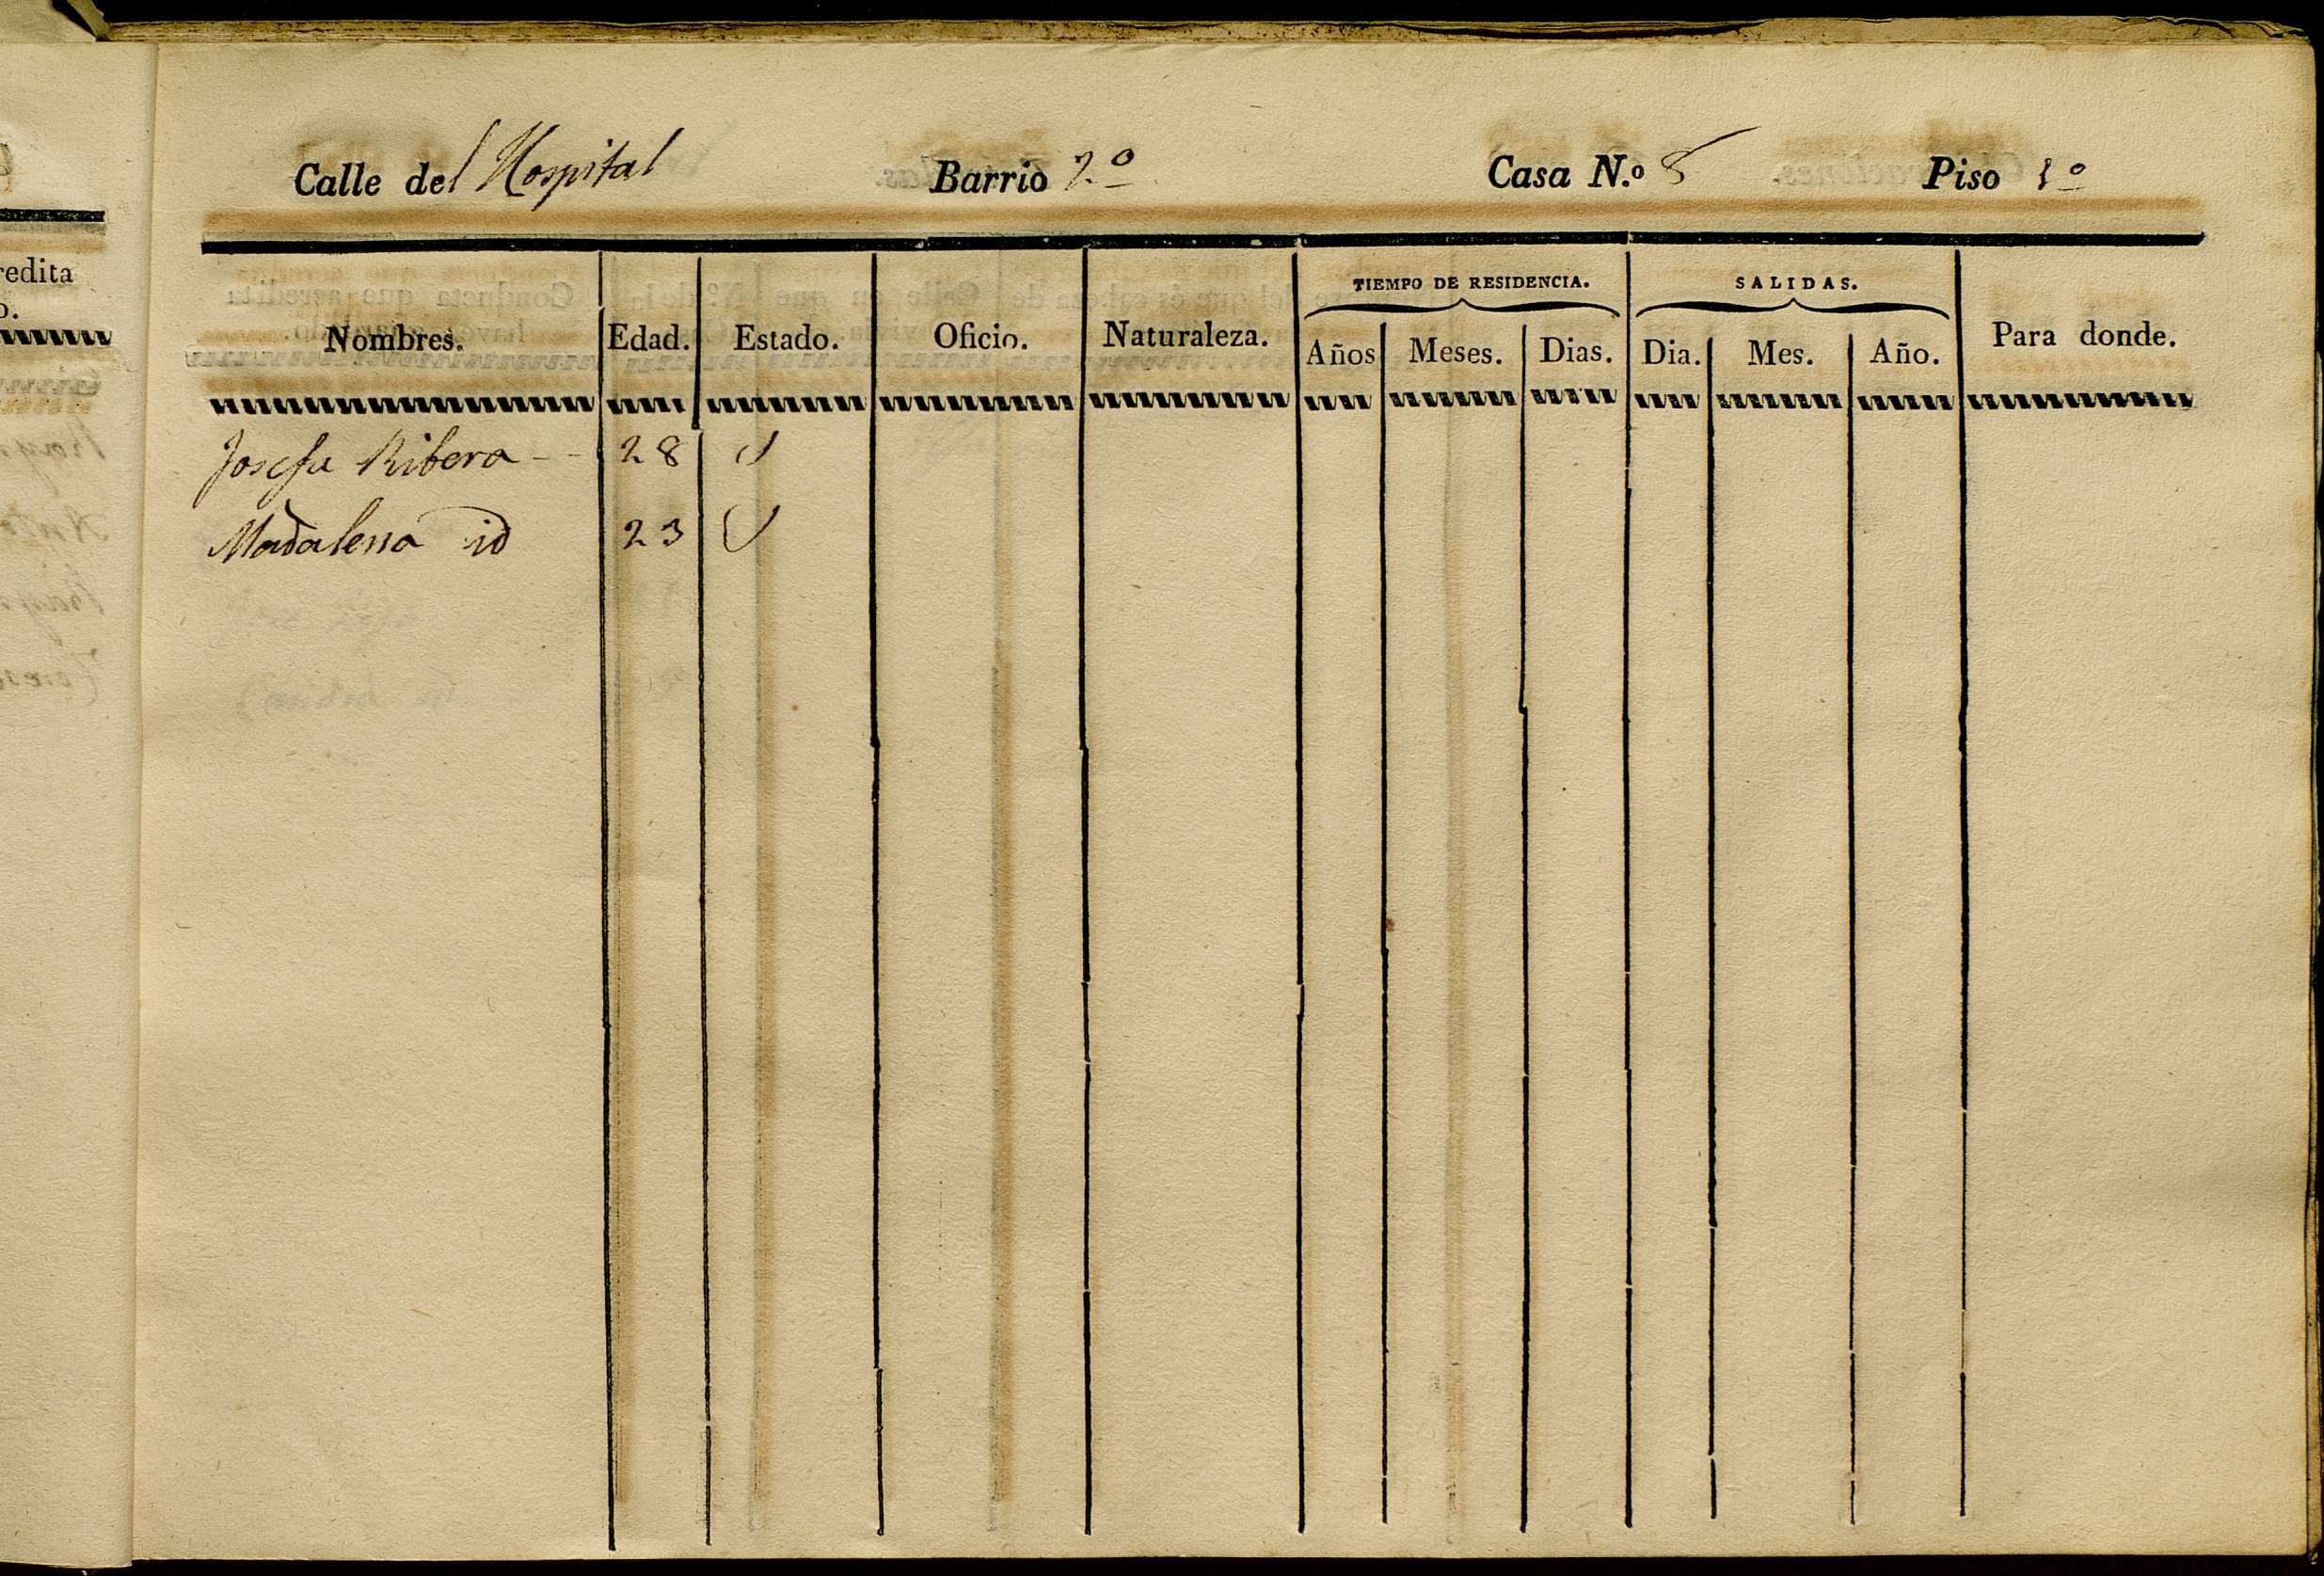 Calle del Hospital Barrio 2.º Casa N.º 8 Piso 1º
redita
o.
TIEMPO DE RESIDENCIA. SALIDAS.
Nombres. Edad. Estado. Oficio. Naturaleza. Años Meses. Dias. Dia. Mes. Año. Para donde.
Josefa Ribera - - 28
Madalena id 23